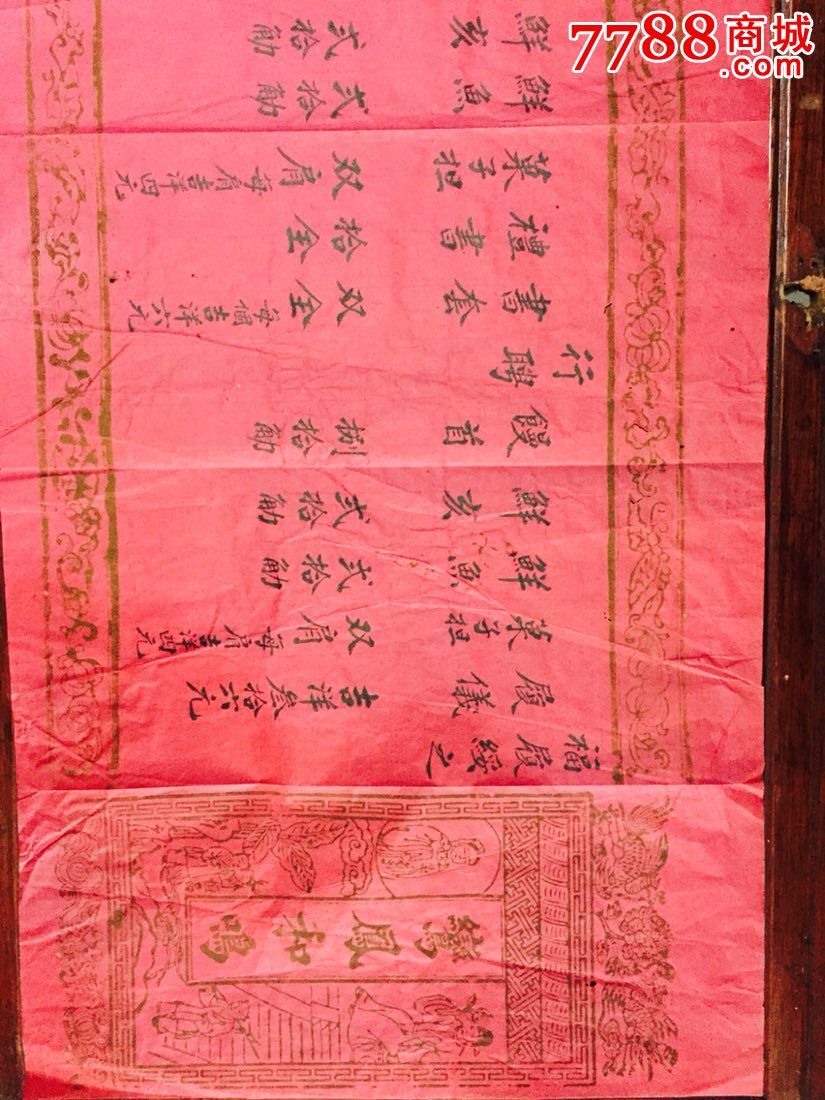 7788商城
.com
鸞鳳和鳴
福履綏之
履儀 吉洋叁拾六元
菓子担 双肩 每肩吉洋四元
鮮魚 弍拾觔
鮮亥 弍拾觔
饅首 捌拾觔
行聘
書套 双全 每個吉洋六元
禮書 拾全
菓子担 双肩 每肩吉洋四元
鮮魚 弍拾觔
鮮亥 弍拾觔